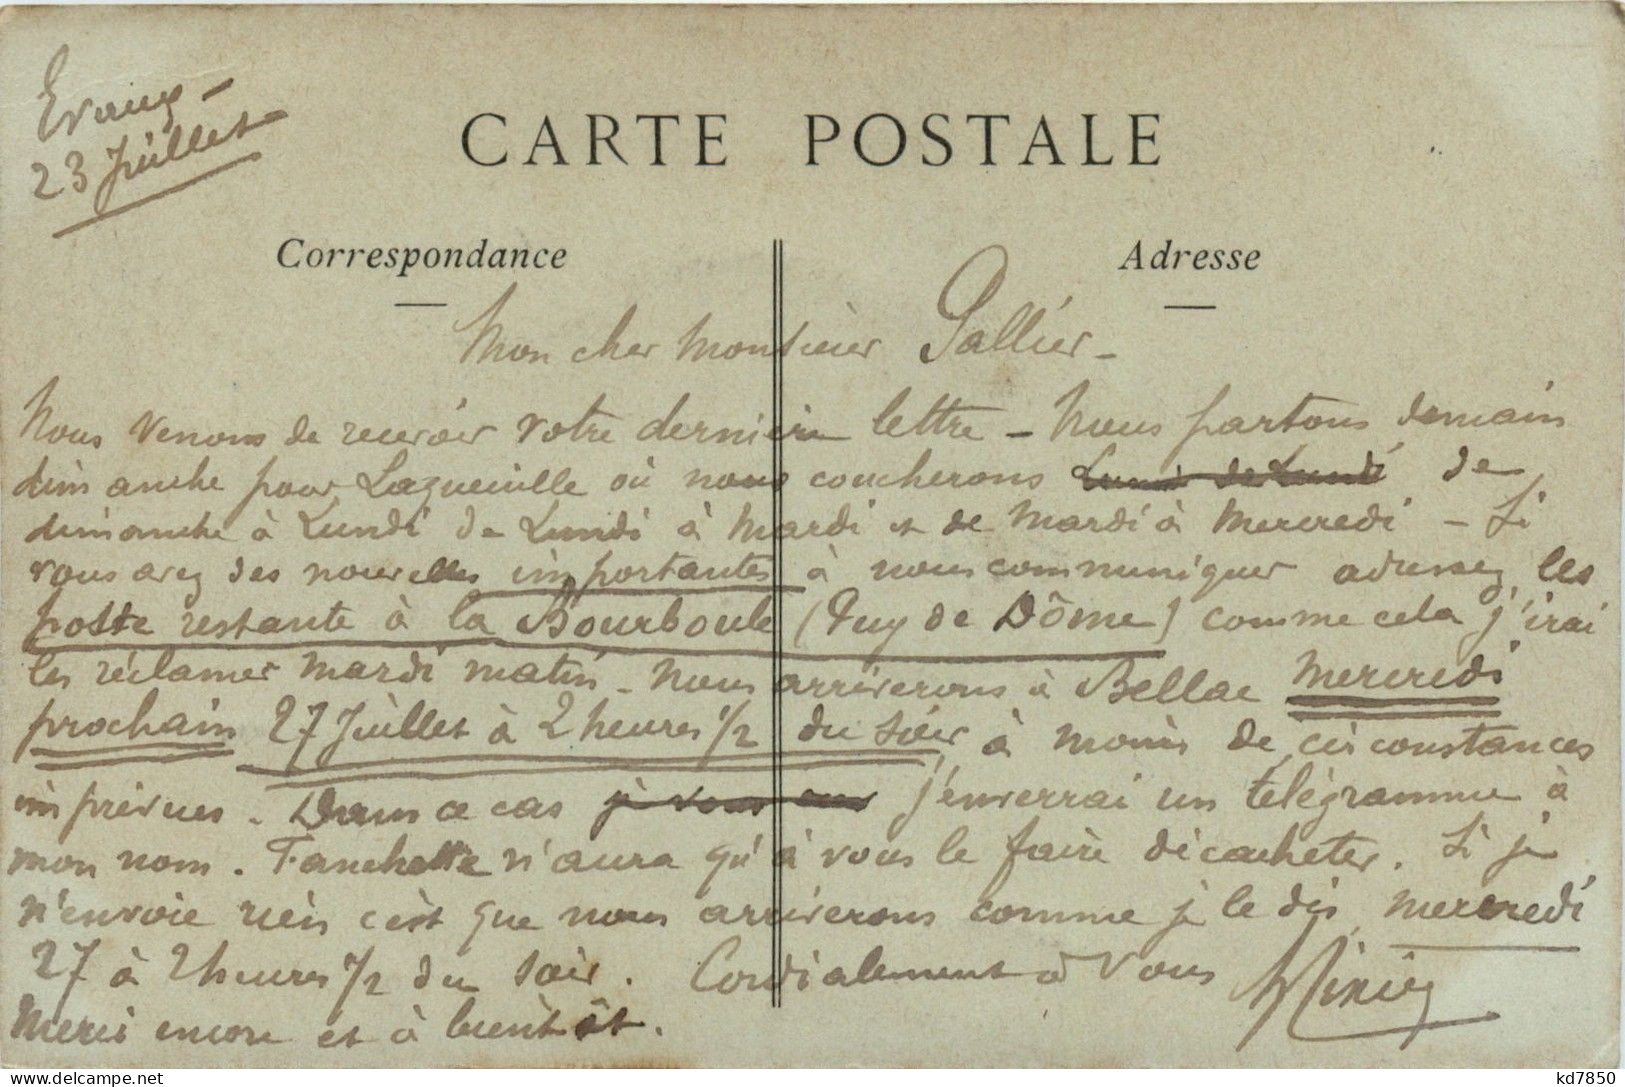 Evaux -
23 Juillet
CARTE POSTALE
Correspondance
Adresse
Mon cher Monsieur Pallier -
Nous venons de recevoir votre dernière lettre - Nous partons demain
dimanche pour Laqueuille où nous coucherons Lundi de Lundi de
dimanche à Lundi de Lundi à Mardi et de Mardi à Mercredi - Si
vous avez des nouvelles importantes à nous communiquer adressez les
poste restante à la Bourboule (Puy de Dôme) comme cela j'irai
les réclamer Mardi matin - Nous arriverons à Bellac Mercredi
prochain 27 Juillet à 2 heures 1/2 du soir à moins de circonstances
imprévues. Dans ce cas je vous j'enverrai un télégramme à
mon nom. Fanchette n'aura qu'à vous le faire décacheter. Si je
n'envoie rien c'est que nous arriverons comme je le dis Mercredi
27 à 2 heures 1/2 du soir. Cordialement à vous
Merci encore et à bientôt.
delcampe.net
kd7850